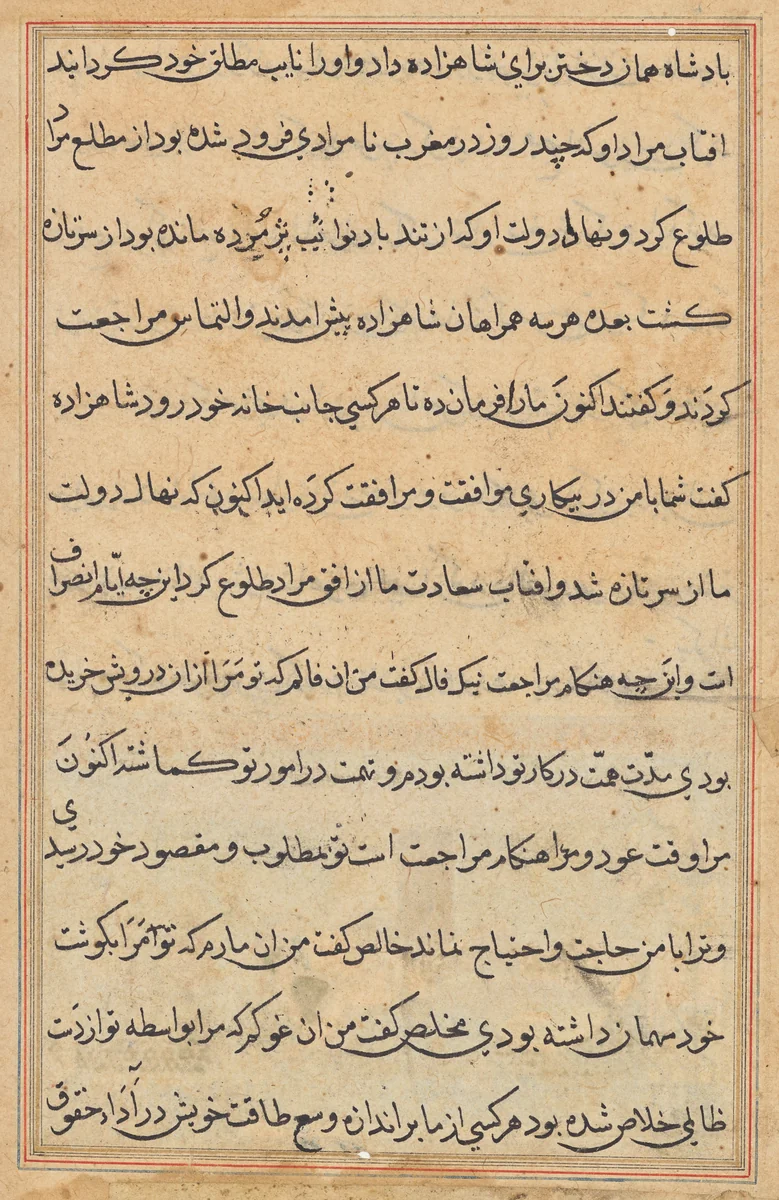 بادشاه همان دختر برای شاهزاده داد و او را نایب مطلق خود کردانید
افتاب مراد او که چند روز در مغرب نا مرادی فرود شده بود از مطلع مراد
طلوع کرد و نهال دولت او که از تند باد نوائب پژمرده مانده بود از سر تازه
کشت بعده هر سه همراهان شاهزاده پیش امدند و التماس مراجعت
کردند و کفتند اکنون ما را فرمان ده تا هر کسی جانب خانه خود رود شاهزاده
کفت شما با من در بیکاری موافقت و مرافقت کرده اید اکنون که نهال دولت
ما از سر تازه شد و افتاب سعادت ما از افق مراد طلوع کرد این چه ایّام انصراف
است و این چه هنکام مراجعت نیک فال کفت من ان فالم که تو مرا ازان درویش خریده
بودی مدّت همّت در کار تو داشته بودم و نهمت در امور تو کماشته اکنون
مرا وقت عود و مرا هنکام مراجعت است تو بمطلوب و مقصود خود رسیدی
و ترا با من حاجت و احتیاج نماند خالص کفت من ان مارم که تو مرا بکوشت
خود مهمان داشته بودی مخلص کفت من ان غوکم که مرا بواسطه تو از دست
ظالمی خلاص شده بود هر کسی از ما بر اندازه وسع طاقت خویش در اداء حقوق